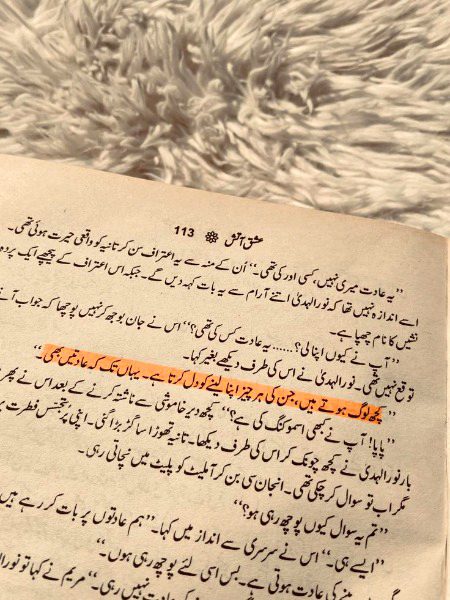 عشق آتش 113
’’یہ عادت میری نہیں، کسی اور کی تھی۔‘‘ اُن کے منہ سے یہ اعتراف سن کر تانیہ کو واقعی حیرت ہوئی تھی۔
اسے اندازہ نہیں تھا کہ نورالہدیٰ اتنے آرام سے یہ بات کہہ دیں گے۔ جبکہ اس اعتراف کے پیچھے ایک پردہ
نشیں کا نام چھپا ہے۔
’’آپ نے کیوں اپنا لی؟...... یہ عادت کس کی تھی؟‘‘ اس نے جان بوجھ کر نہیں پوچھا کہ جواب آنے
توقع نہیں تھی۔ نورالہدیٰ نے اس کی طرف دیکھے بغیر کہا۔
’’کچھ لوگ ہوتے ہیں، جن کی ہر چیز اپنا لینے کو دل کرتا ہے۔ یہاں تک کہ عادتیں بھی۔‘‘
’’پاپا! آپ نے کبھی اسموکنگ کی ہے؟‘‘ کچھ دیر خاموشی سے ناشتہ کرنے کے بعد اس نے پھر
بار نورالہدیٰ نے کچھ چونک کر اس کی طرف دیکھا۔ تانیہ تھوڑا سا گڑبڑا گئی۔ اپنی پُرتجسس فطرت پر
مگر اب تو سوال کر چکی تھی۔ انجان سی بن کر آملیٹ کو پلیٹ میں نچاتی رہی۔
’’تم یہ سوال کیوں پوچھ رہی ہو؟‘‘
’’ایسے ہی۔‘‘ اس نے سرسری سے انداز میں کہا۔ ’’ہم عادتوں پر بات کر رہے ہیں
کی عادت ہوتی ہے۔ بس اسی لئے پوچھ رہی ہوں۔‘‘
عادت نہیں رہی۔‘‘ مریم نے کہا تو نورال